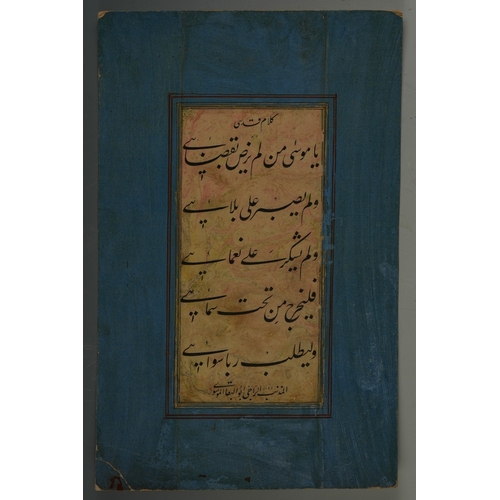 کلام قدسی
یا موسی من لم یرض بقضایی
ولم یصبر علی بلایی
ولم یشکر علی نعمایی
فلیخرج من تحت سمایی
ولیطلب ربا سوایی
المذنب الراجی ابو البقا الموسوی